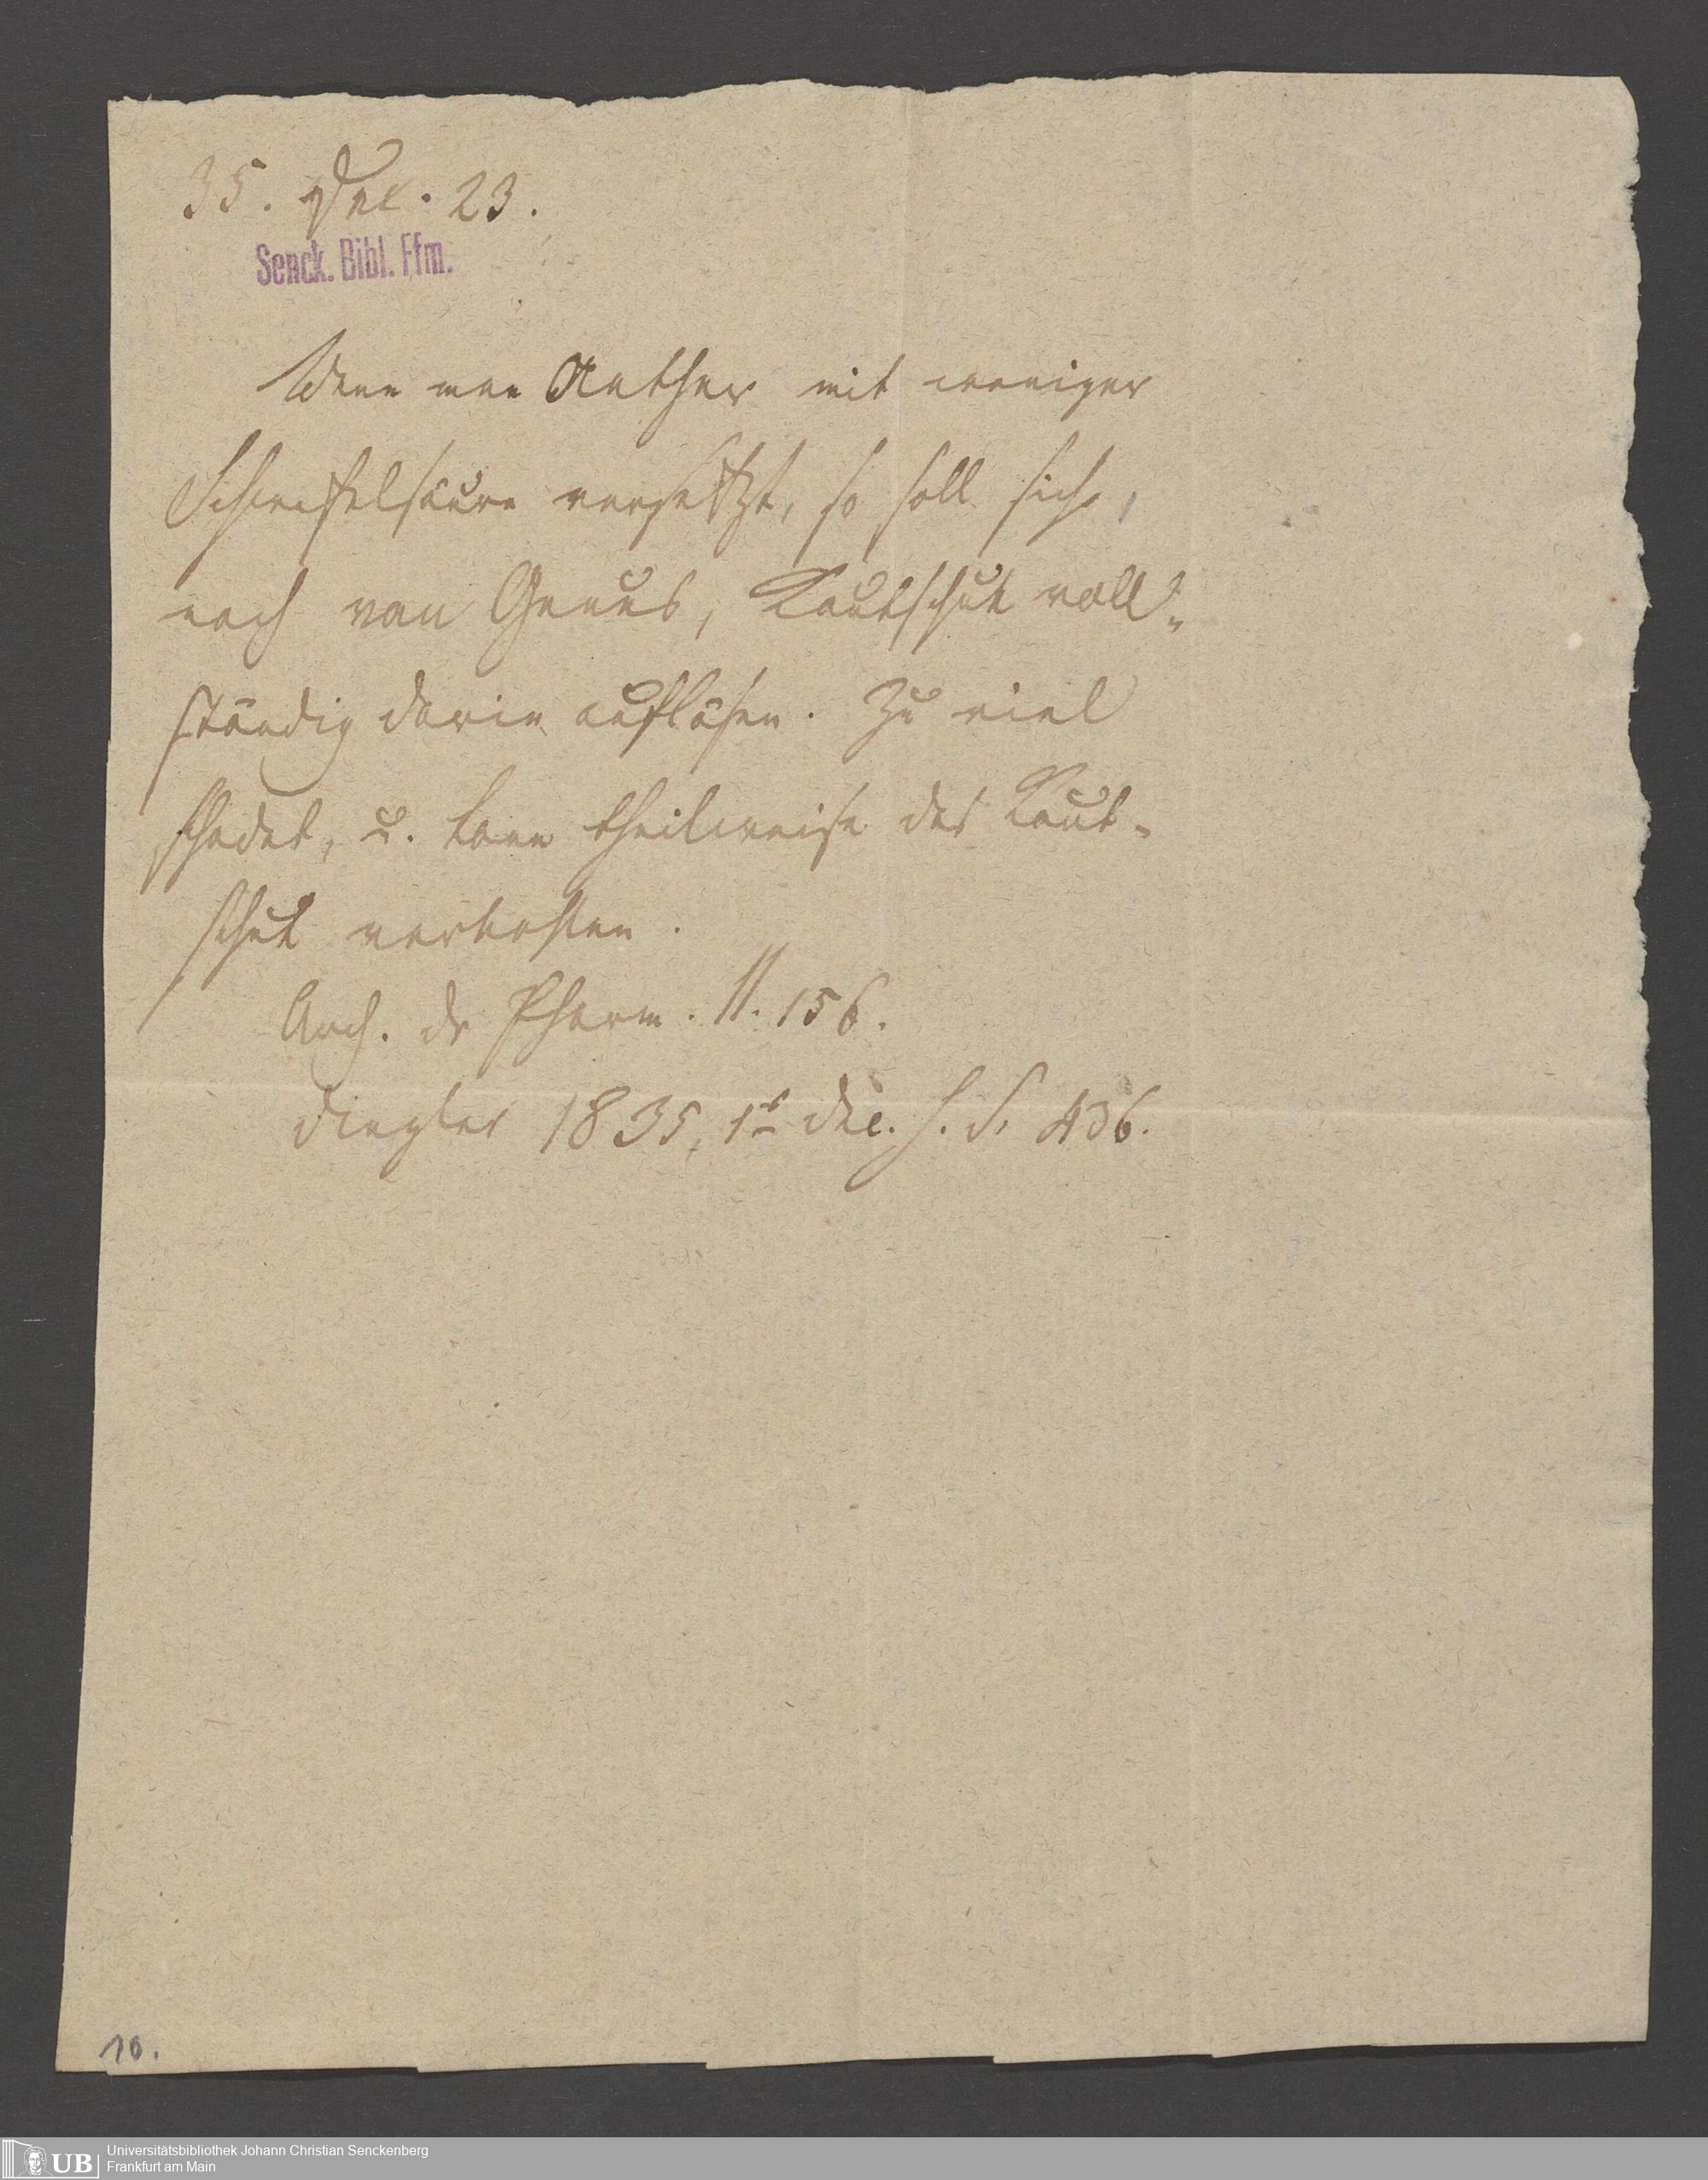 35. Dec. 23.
Senck. Bibl. Ffm.
Wenn man Aether mit weniger
Schwefelsäure versetzt, so soll sich,
nach van Geuns, Kautschuk voll„
ständig darin auflösen. Zu viel
schadet, u. kann theilweise das Kaut„
schuk verkohlen.
Arch. dr Pharm. II. 156.
Dingler 1835, 1s Dec. H. S. 436.
10.
UB
Universitätsbibliothek Johann Christian Senckenberg
Frankfurt am Main